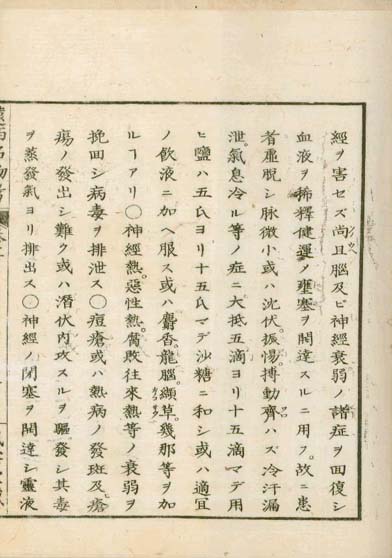 經ヲ害セズ尚且腦及ビ神經衰弱ノ諸症ヲ回復シ
血液ヲ稀釋健運ノ壅塞ヲ開達スルニ用フ。故ニ患
者虛脱シ脉微小或ハ沈伏。振惕。搏動齊ハズ冷汗漏
泄。氣息冷ル等ノ症ニ大抵五滴ヨリ十五滴マデ用
ヒ鹽ハ五氏ヨリ十五氏マデ沙糖ニ和シ或ハ適宜
ノ飲液ニ加ヘ服ス或ハ麝香。龍腦。纈草。幾那等ヲ加
ルヿアリ〇神經熱。惡性熱。腐敗往來熱等ノ衰弱ヲ
挽回シ病毒ヲ排泄ス〇痘瘡或ハ熱病ノ發斑及。瘡
瘍ノ發出シ難ク或ハ潛伏内攻スルヲ驅。發シ其毒
ヲ蒸發氣ヨリ排出ス〇神經ノ閉塞ヲ開達シ靈液